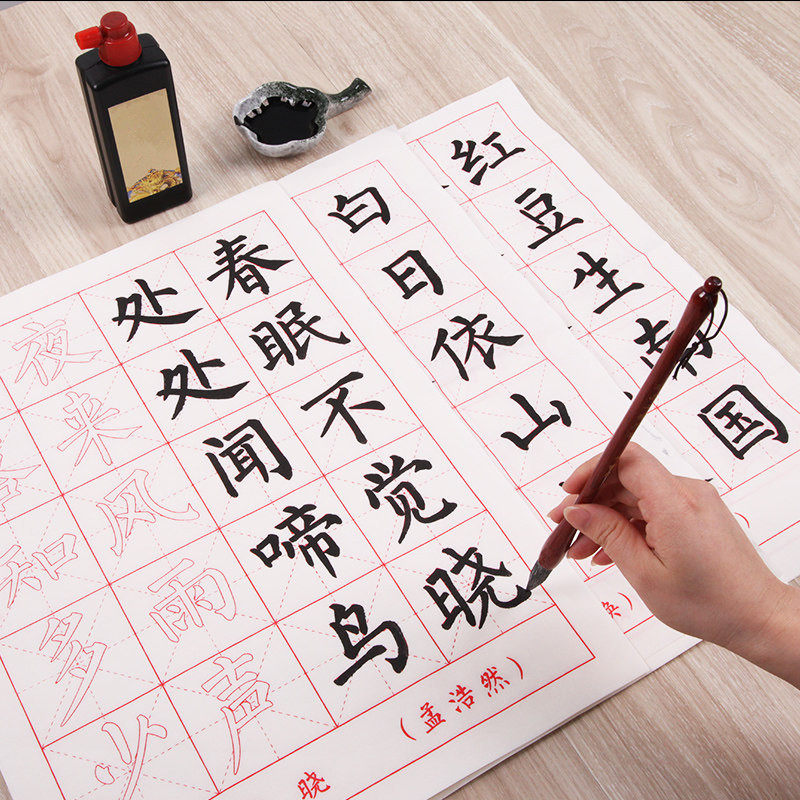 红豆生南国
白日依山
春眠不觉晓
处处闻啼鸟
夜来风雨声
知多少
晓
（孟浩然）